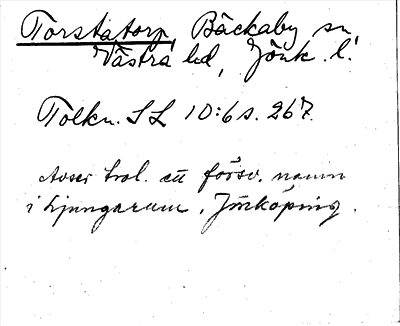 Torstatorp, Bäckaby sn,
Västra hd, Jönk. l.
Tolkn. SL 10:6 s. 267.
Avser trol. ett försv. namn
i Ljungarum, Jönköping.